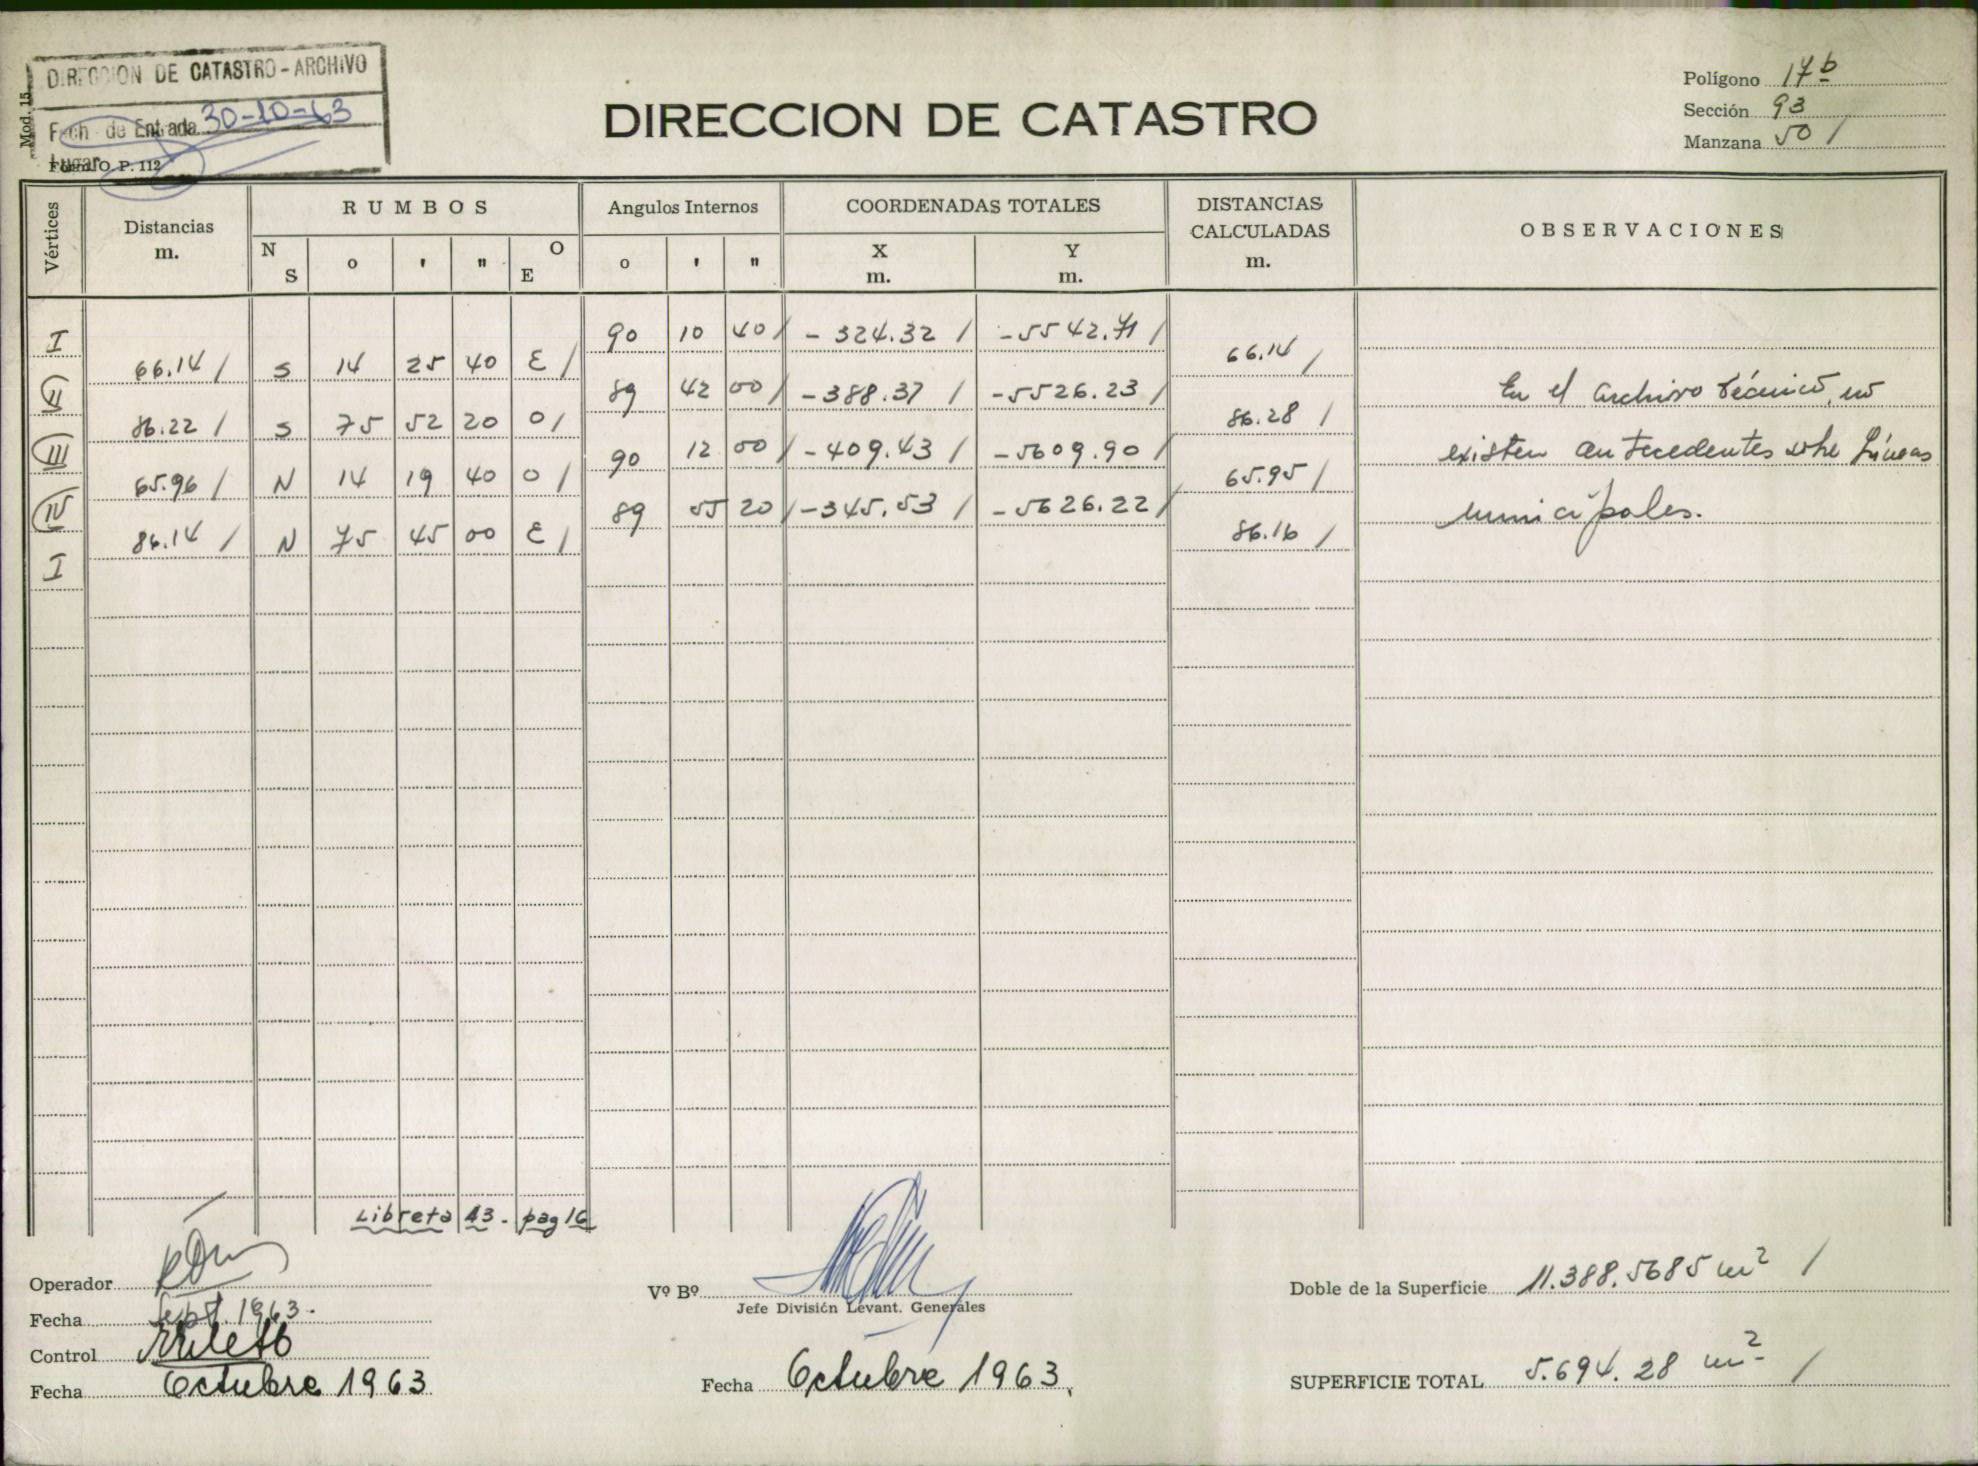 DIRECCION DE CATASTRO - ARCHIVO
Fecha de Entrada 30-10-63
Lugar
Mod. 15
O. P. 112
DIRECCION DE CATASTRO
Polígono 17b
Sección 93
Manzana 50 /
Vértices
Distancias
m.
RUMBOS
N
S
o
'
"
O
E
Angulos Internos
o
'
"
COORDENADAS TOTALES
X
m.
Y
m.
DISTANCIAS
CALCULADAS
m.
OBSERVACIONES
I 90 10 40 / - 324.32 / - 5542.71 /
66.14 / S 14 25 40 E / 66.14 /
II 89 42 00 / - 388.37 / - 5526.23 /
86.22 / S 75 52 20 O / 86.28 /
III 90 12 00 / - 409.43 / - 5609.90 /
65.96 / N 14 19 40 O / 65.95 /
IV 89 55 20 / - 345.53 / - 5626.22 /
86.14 / N 75 45 00 E / 86.16 /
I
En el archivo técnico, no
existen antecedentes sobre Líneas
municipales.
Libreta 43 - pag 16
Operador
Fecha Sept. 1963.-
Control
Fecha Octubre 1963
Vº Bº
Jefe División Levant. Generales
Fecha Octubre 1963.
Doble de la Superficie 11.388.5685 m² /
SUPERFICIE TOTAL 5.694.28 m² /